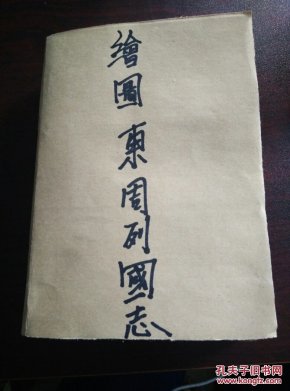 繪圖東周列國志
孔夫子旧书网